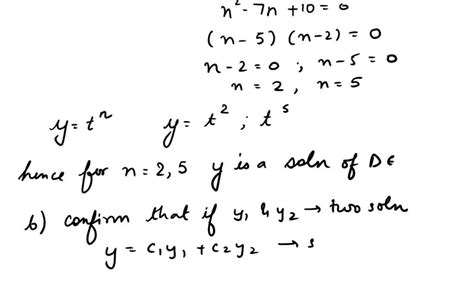 n² - 7n + 10 = 0
(n - 5) (n - 2) = 0
n - 2 = 0 ; n - 5 = 0
n = 2 , n = 5
y = tⁿ y = t² ; t⁵
hence for n = 2, 5 y is a soln of DE
b) confirm that if y₁ & y₂ → two soln
y = c₁y₁ + c₂y₂ → s